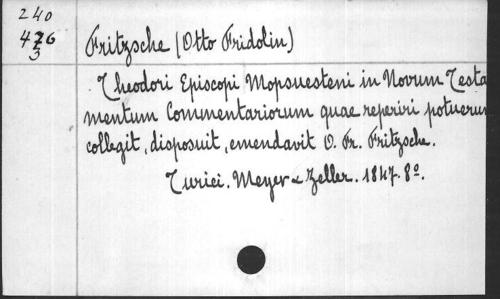 240
426
3
Fritzsche (Otto Fridolin)
Theodori Episcopi Mopsuesteni in Novum Testa
mentum Commentariorum quae reperiri potuerun
collegit, disposuit, emendavit O. Fr. Fritzsche.
Turici. Meyer & Zeller. 1847. 8º.